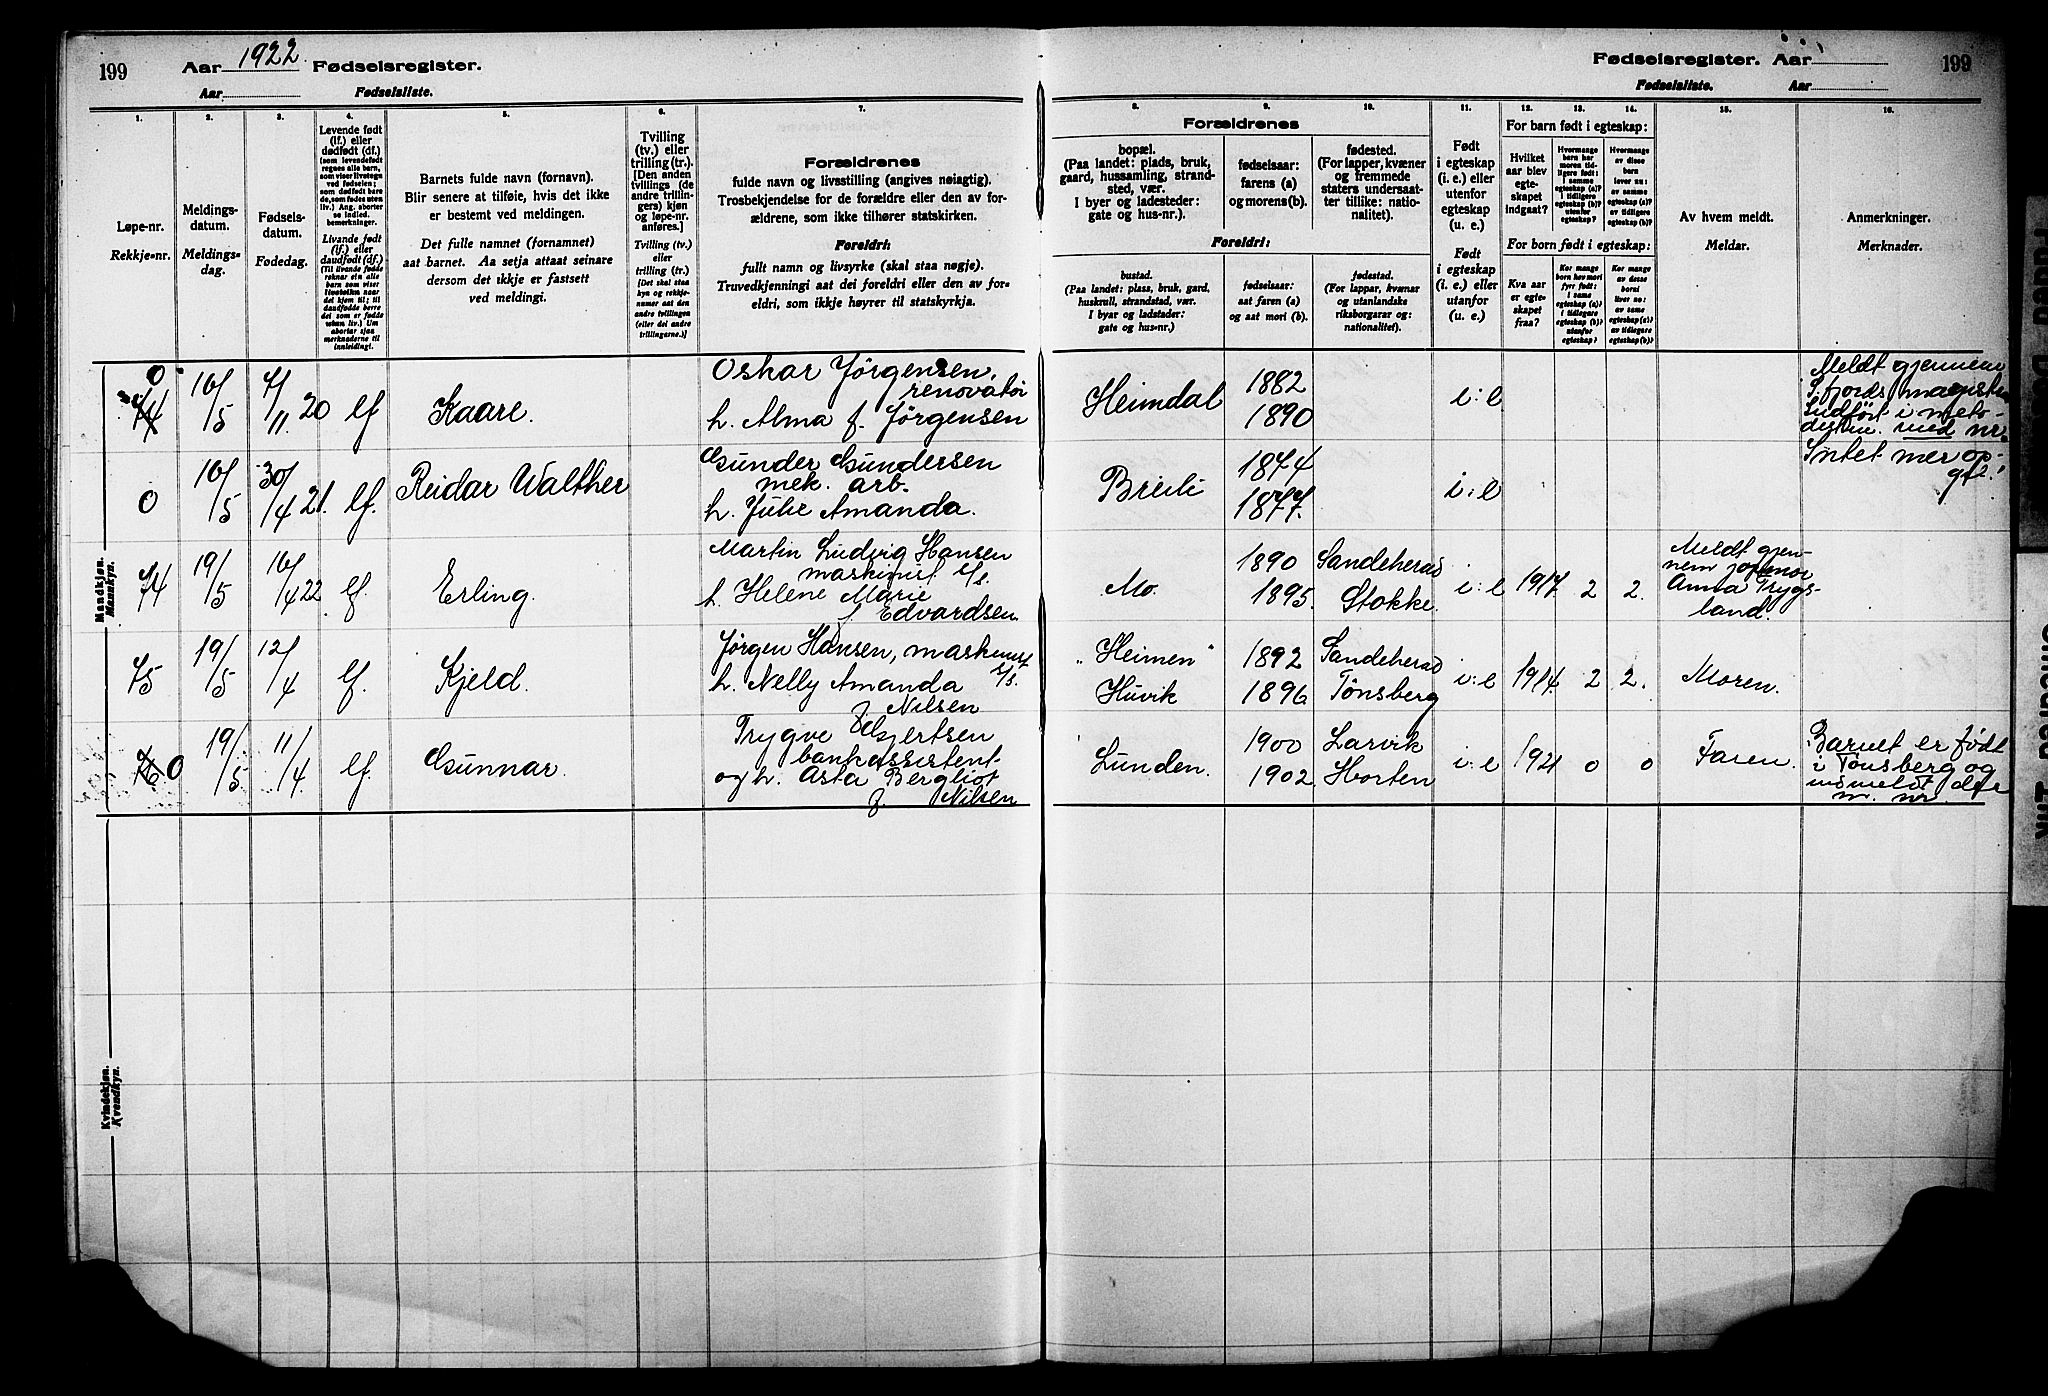 199 Aar 1922 Fødselsregister.
Aar Fødselsliste.
Fødselsregister. Aar 199
Fødselsliste. Aar
1. 2. 3. 4. 5. 6. 7.
Løpe-nr.
Rekkje-nr.
Meldings-
datum.
Meldings-
dag.
Fødsels-
datum.
Fødedag.
Levende født
(lf.) eller
dødfødt (df.)
(som levendefødt
regnes alle barn,
som viser livstegn
ved fødselen;
som dødfødt bare
de, som fødes uten
liv.) Ang. aborter
se indled.
bemerkninger.
Livande født
(lf.) eller
daudfødt (df.)
(Til livande fødde
reknar ein alle
born som viser
livsteikn naar
dei kjem til; til
daudfødde berre
dei som er fødde
utan liv.) Um
abortar sjaa
merknaderne til
innleidingi.
Barnets fulde navn (fornavn).
Blir senere at tilføie, hvis det ikke
er bestemt ved meldingen.
Det fulle namnet (fornamnet)
aat barnet. Aa setja attaat seinare
dersom det ikkje er fastsett
ved meldingi.
Tvilling
(tv.) eller
trilling (tr.).
[Den anden
tvillings (de
andre trillin-
gers) kjøn
og løpe-nr.
anføres.]
Tvilling (tv.)
eller
trilling (tr.)
[Det skal staa
kyn og rekkje-
numer aat den
andre tvillingen
(eller dei andre
trillingarne.)]
Forældrenes
fulde navn og livsstilling (angives nøiagtig).
Trosbekjendelse for de forældre eller den av for-
ældrene, som ikke tilhører statskirken.
Foreldri:
fullt namn og livsyrke (skal staa nøgje).
Truvedkjenningi aat dei foreldri eller den av for-
eldri, som ikkje høyrer til statskyrkja.
8. 9. 10. 11. 12. 13. 14. 15. 16.
Forældrenes
bopæl.
(Paa landet: plads, bruk,
gaard, hussamling, strand-
sted, vær.
I byer og ladesteder:
gate og hus-nr.).
fødselsaar:
farens (a)
og morens (b).
fødested.
(For lapper, kvæner
og fremmede
staters undersaat-
ter tillike: natio-
nalitet).
Foreldri:
bustad.
(Paa landet: plass, bruk, gard,
huskrull, strandstad, vær.
I byar og ladstader:
gate og hus-nr.)
fødselsaar:
aat faren (a)
og aat mori (b).
fødestad.
(For lappar, kvænar
og utanlandske
riksborgarar og:
nationalitet).
Født
i egteskap
(i. e.) eller
utenfor
egteskap
(u. e.)
Født
i egteskap
(i. e.) eller
utanfor
(u. e.)
For barn født i egteskap:
Hvilket
aar blev
egte-
skapet
indgaat?
Hvormange
barn har
moren tid-
ligere født:
i samme
egteskap (a)?
i tidligere
egteskap (b)?
utenfor
egteskap?
Hvormange
av disse
barn
lever nu:
av samme
egteskap (a)?
av tidligere
egteskap (b)?
For born født i egteskap:
Kva aar
er egte-
skapet
fraa?
Kor mange
born hev mori
fyrr født:
i same
egteskap (a)?
i tidlegare
egteskap (b)?
utanfor
egteskap?
Kor mange
av desse
borni
liver no:
av same
egteskap (a)?
av tidlegare
egteskap (b)?
Av hvem meldt.
Meldar.
Anmerkninger.
Merknader.
Mandkjøn.
Mannkyn.
0
16/5 7/11 20 lf Kaare.
Oskar Jørgensen,
renovatør
h. Alma f. Jørgensen
Heimdal 1882
1890
i: e
Meldt gjennem
Indført i meto-
med nr.
0 16/5 30/4 21. lf. Reidar Walther
Gunder Gundersen
mek. arb.
h. Julie Amanda.
1874
1877.
i: e
Intet mer op-
74 19/5 16/4 22 lf. Erling.
Martin Ludvig Hansen
maskinist
h. Helene Marie
f Edvardsen.
Mo. 1890 Sandeherad
1895. Stokke.
i: e 1917. 2 2.
Meldt gjen-
nem jormor
Anna Trygs-
land.
75 19/5 12/4 lf. Kjeld.
Jørgen Hansen, maskinist
h. Nelly Amanda
f Nilsen
"Heimen" 1892 Sandeherad
Huvik 1896 Tønsberg
i: e 1914. 2 2. Moren.
76 0 19/5 11/4. lf. Gunnar.
Trygve Gjertsen
bankassistent
og h. Asta Bergliot
f. Nilsen
Lunden. 1900 Larvik
1902. Horten
i: e 1921 0 0 Faren.
Barnet er født
i Tønsberg og
indmeldt der
m. nr.
Kvindekjøn.
Kvendkyn.